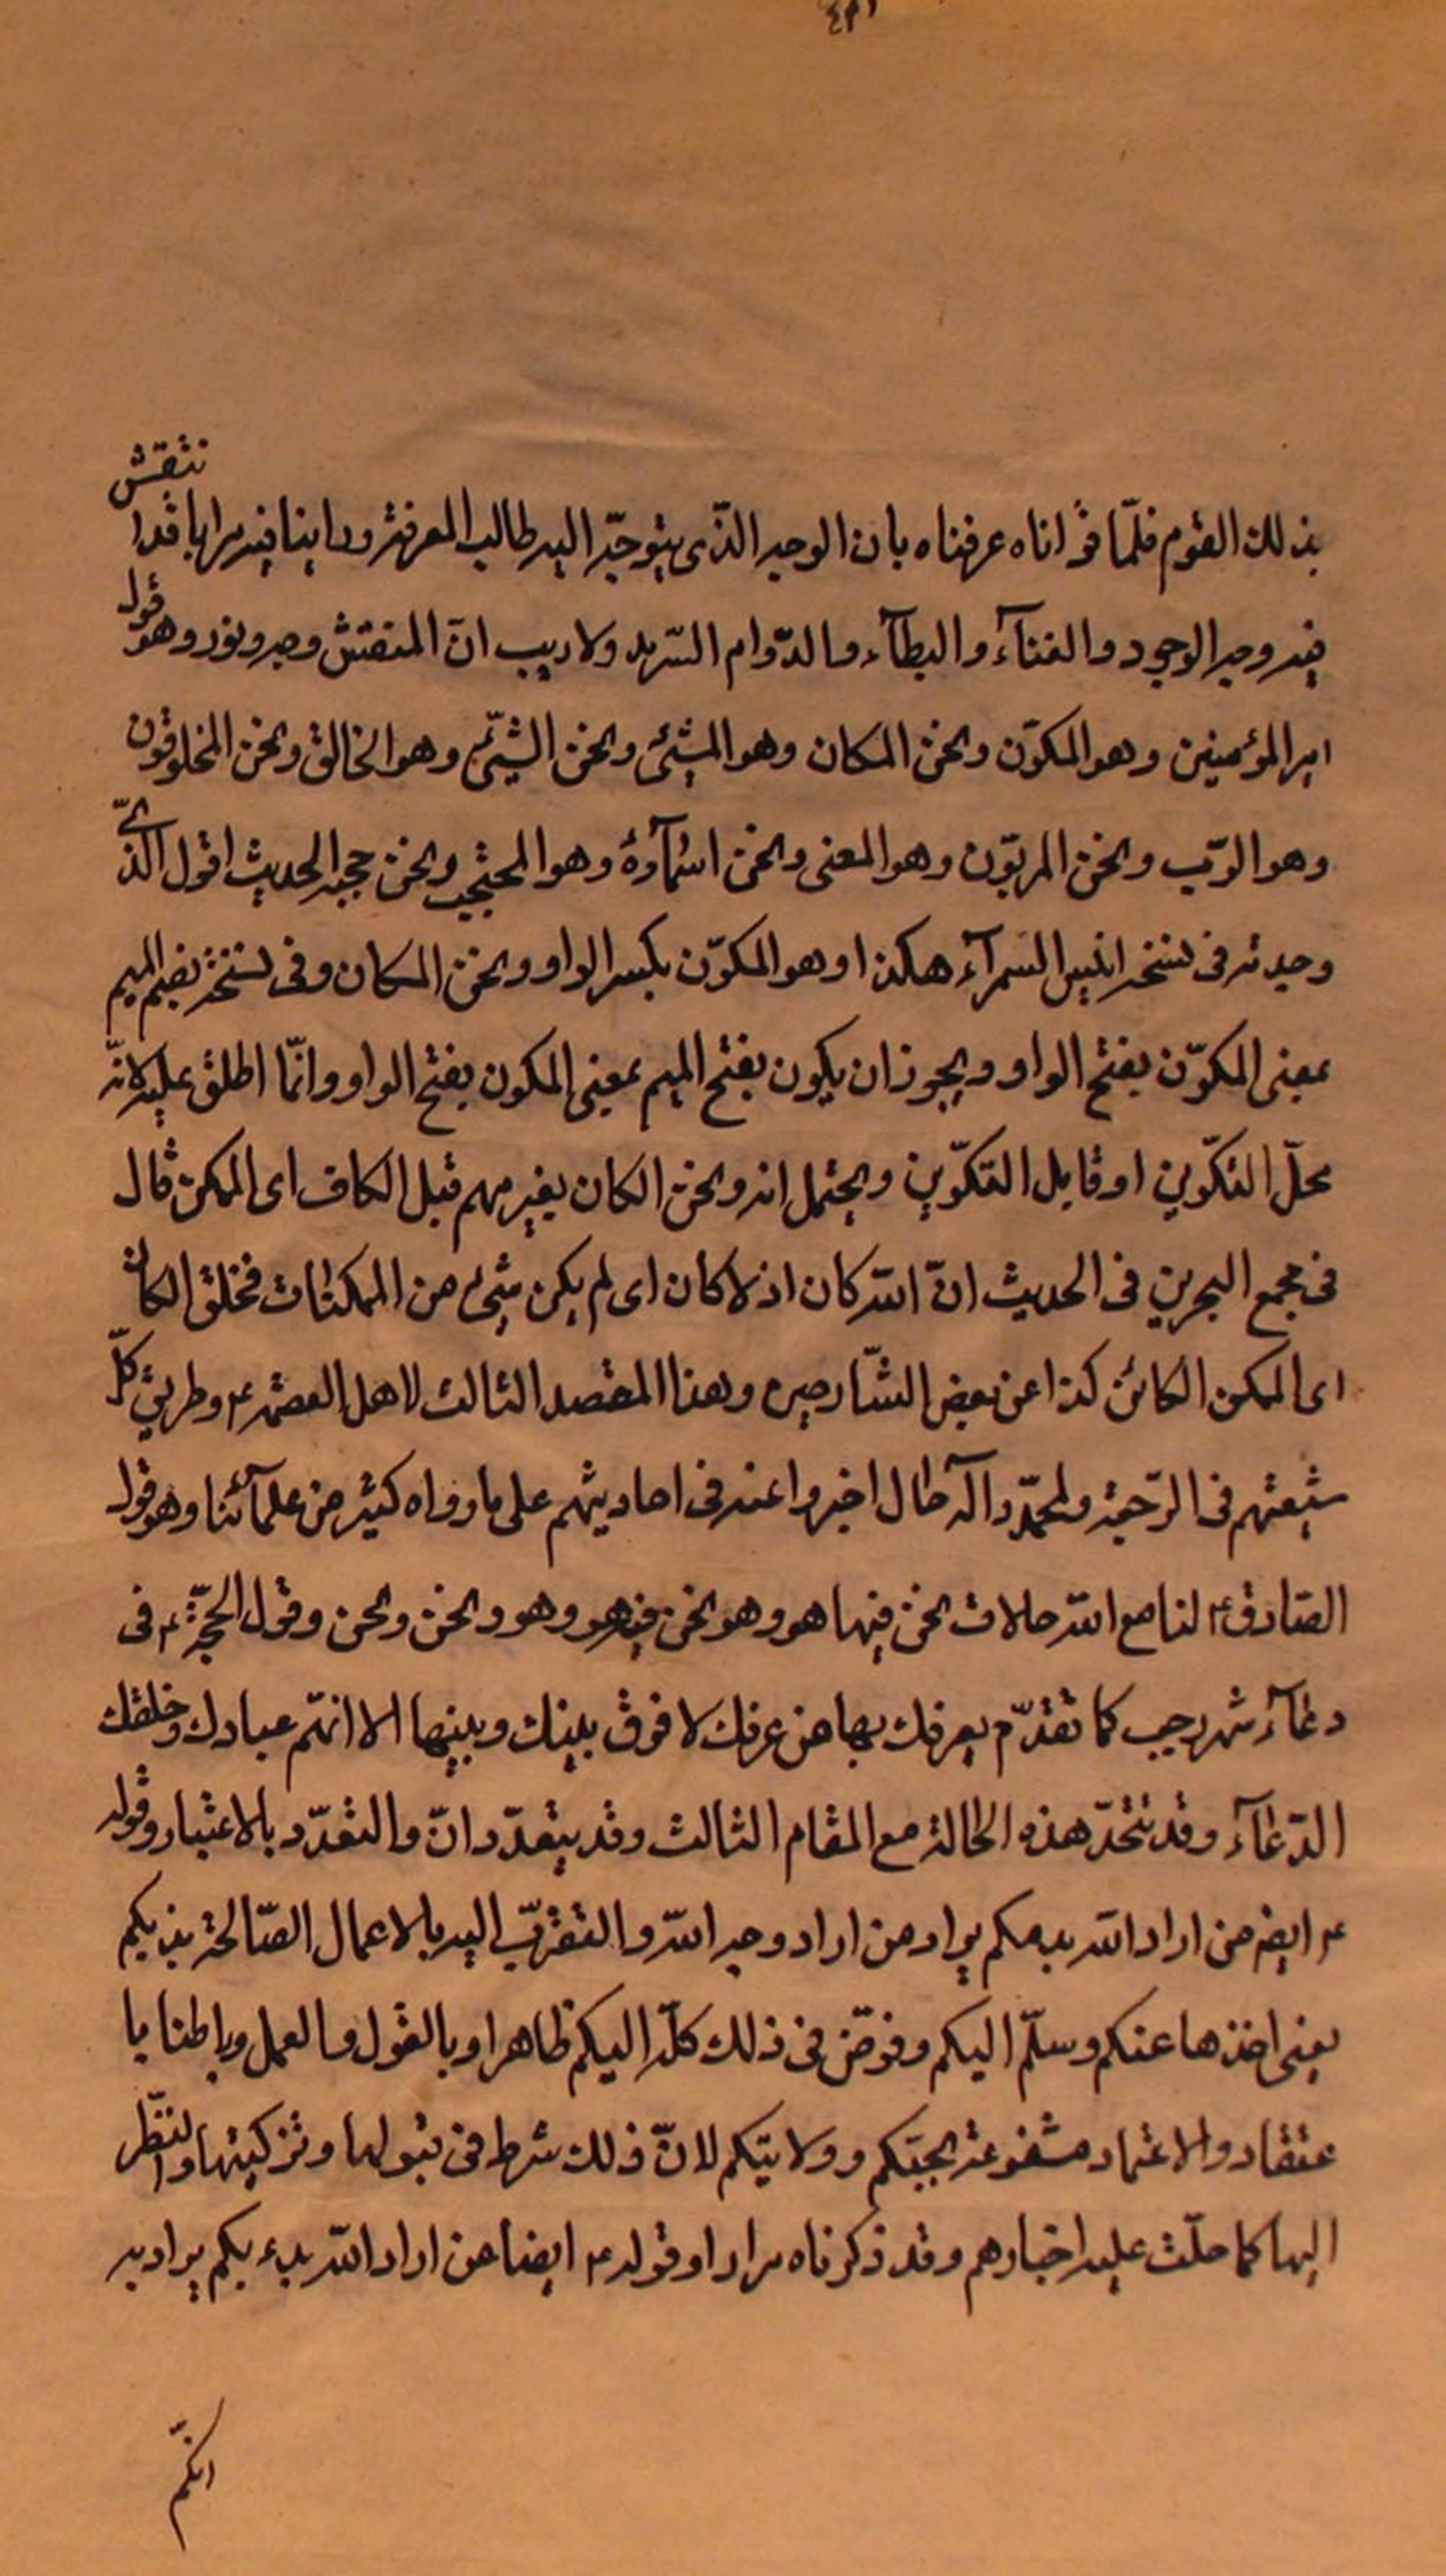 بذلك القوم فلمّا قرأناه عرفناه بان الوجه الذّى يتوجّه اليه طالب المعرفة وراينا فيه مرايا قد انتقش
فيه وجه الوجود والفنآء والبطآء والدّوام السّرمد ولا ريب انّ المنقتش وجه ونور وهو قول
امير المؤمنين وهو المكوّن ونحن المكان وهو المشيّئ ونحن الشيّئ وهو الخالق ونحن المخلوقون
وهو الرّب ونحن المربوّن وهو المعنى ونحن اسمآؤه وهو المحتجب ونحن حجبه الحديث اقول الّذى
وجدته فى نسخه انيس السمرآء هكذا وهو المكوّن بكسر الواو ونحن المكان وفى نسخة بضم الميم
بمعنى المكوّن بفتح الواو ويجوز ان يكون بفتح الميم بمعنى المكون بفتح الواو وانّما اطلق عليه لانّه
محلّ التكّوين او قابل التكّوين ويحتمل انه ونحن الكان بغير ميم قبل الكاف اى الممكن قال
فى مجمع البحرين فى الحديث انّ الله كان اذ لا كان اى لم يكن شئ من الممكنات فخلق الكان
اى الممكن الكائن كذا عن بعض الشّارحين وهذا المقصد الثالث لاهل العصمة ع وطريق كلّ
شيعتهم فى الرّجعة ولمحمّد وآله حال اخبروا عنه فى احاديثهم على ما رواه كثير من علمآئنا وهو قول
الصّادق ع لنا مع الله حالات نحن فيها هو وهو نحن فيه هو وهو هو ونحن ونحن وقول الحجّة ع فى
دعآء شهر رجب كما تقدّم يعرفك بها من عرفك لا فرق بينك وبينها الا انهّم عبادك وخلقك
الدّعآء وقد تتّحد هذه الحالة مع المقام الثالث وقد يتعدّد انّ والتعّدّد بالاعتبار وقوله
ع ايضم من اراد الله بدء بكم يراد من اراد وجه الله والتقرّب اليه بالاعمال الصّالحة بدء بكم
يعنى اخذها عنكم وسلّم اليكم وفوّض فى ذلك كلّه اليكم ظاهرا وبالقول والعمل وباطنا با
عتقاد والاعتماد مشفوعة بمحبّتكم وولايتكم لانّ ذلك شرط فى قبولها وتزكيتها والنّظر
اليها كما دلّت عليه اخبارهم وقد ذكرناه مرارا وقوله ع ايضا من اراد الله بدء بكم يراد به
انكّم